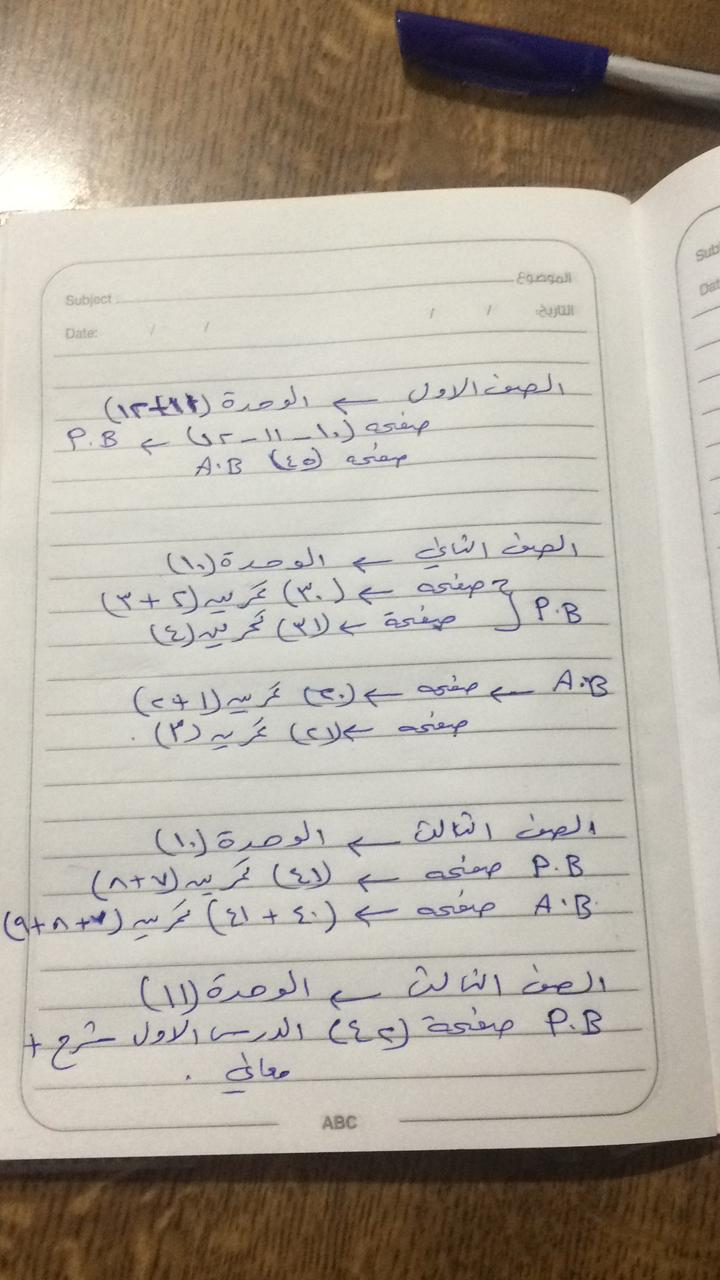 Subject الموضوع
Date: / / / / التاريخ:
الصف الاول ← الوحدة (١٢+١١)
صفحة (١٠ – ١١ – ١٢) ← P.B
صفحة (٤٥) A.B
الصف الثاني ← الوحدة (١٠)
صفحة ← (٣٠) تمرين (٢ + ٣)
P.B صفحة ← (٣١) تمرين (٤)
A.B ← صفحة ← (٢٠) تمرين (١ + ٢)
صفحة ← (٢١) تمرين (٣) .
الصف الثالث ← الوحدة (١٠)
P.B صفحة ← (٤١) تمرين (٧+٨)
A.B صفحة ← (٤٠ + ٤١) تمرين (٧+٨+٩)
الصف الثالث ← الوحدة (١١)
P.B صفحة (٤٢) الدرس الاول شرح +
معاني .
ABC
Sub
Dat